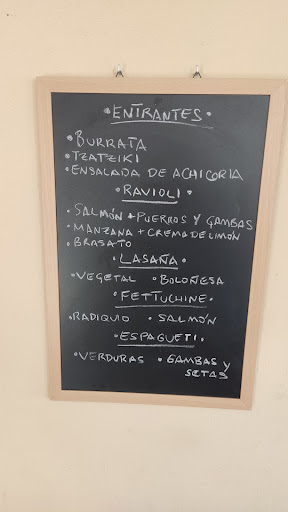 • ENTRANTES •
• BURRATA
• TZATZIKI
• ENSALADA DE ACHICORIA
• RAVIOLI •
• SALMÓN + PUERROS Y GAMBAS
• MANZANA + CREMA DE LIMÓN
• BRASATO
• LASAÑA •
• VEGETAL • BOLOÑESA
• FETTUCHINE •
• RADIQUIO • SALMÓN
• ESPAGUETI •
• VERDURAS • GAMBAS Y
SETAS